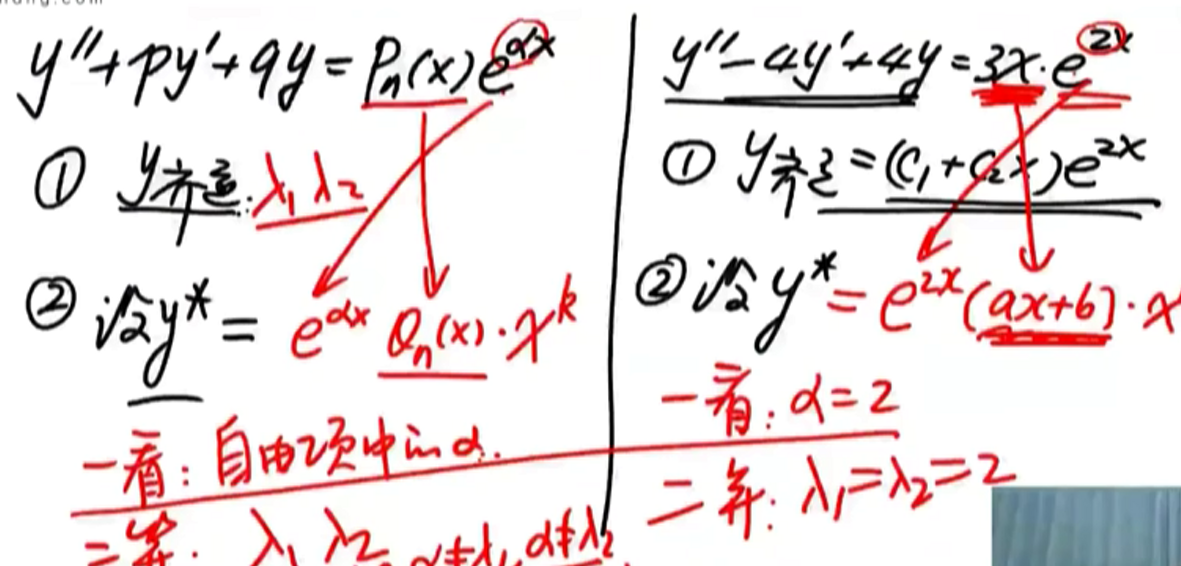 y″+py′+qy=Pₙ(x)e^{αx}
① y齐通:λ₁ λ₂
② 设y*= e^{αx} Qₙ(x)·x^k
一看:自由项中的α.
二算: λ₁ λ₂ α≠λ₁ α≠λ₂
y″-4y′+4y=3x·e^{2x}
① y齐通=(C₁+C₂x)e^{2x}
② 设y*=e^{2x}(ax+b)·x
一看:α=2
二算:λ₁=λ₂=2